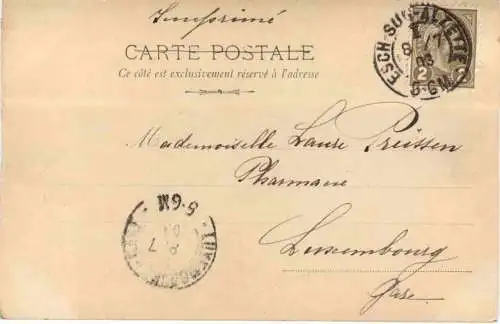 Imprimé
CARTE POSTALE
Ce côté est exclusivement réservé à l'adresse
ESCH-SUR-ALZETTE
8
03
5-6N
2
2
Mademoiselle Laure Preissen
Pharmacie
Luxembourg
Gare.
5-6N
7